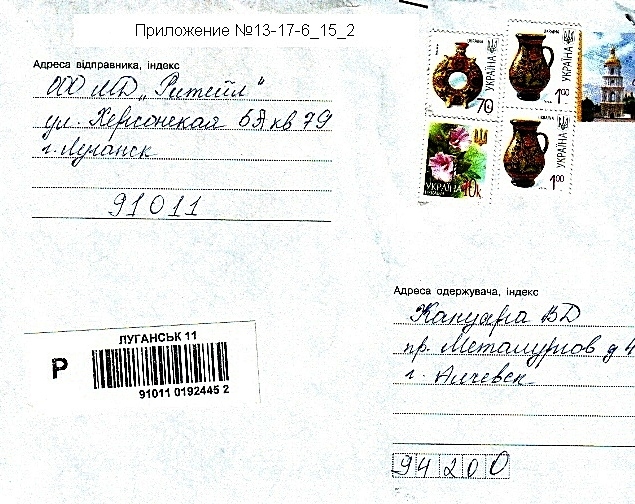 Приложение №13-17-6_15_2
Адреса відправника, індекс
ООО МД „Ритейл"
ул. Херсонская 6 кв 79
г. Луганск
91011
УКРАЇНА
70
УКРАЇНА
1.00
УКРАЇНА
10к
УКРАЇНА
1.00
ЛУГАНСЬК 11
Р
91011 0192445 2
Адреса одержувача, індекс
ВД
пр. Металургов д 4
г. Алчевск
94200